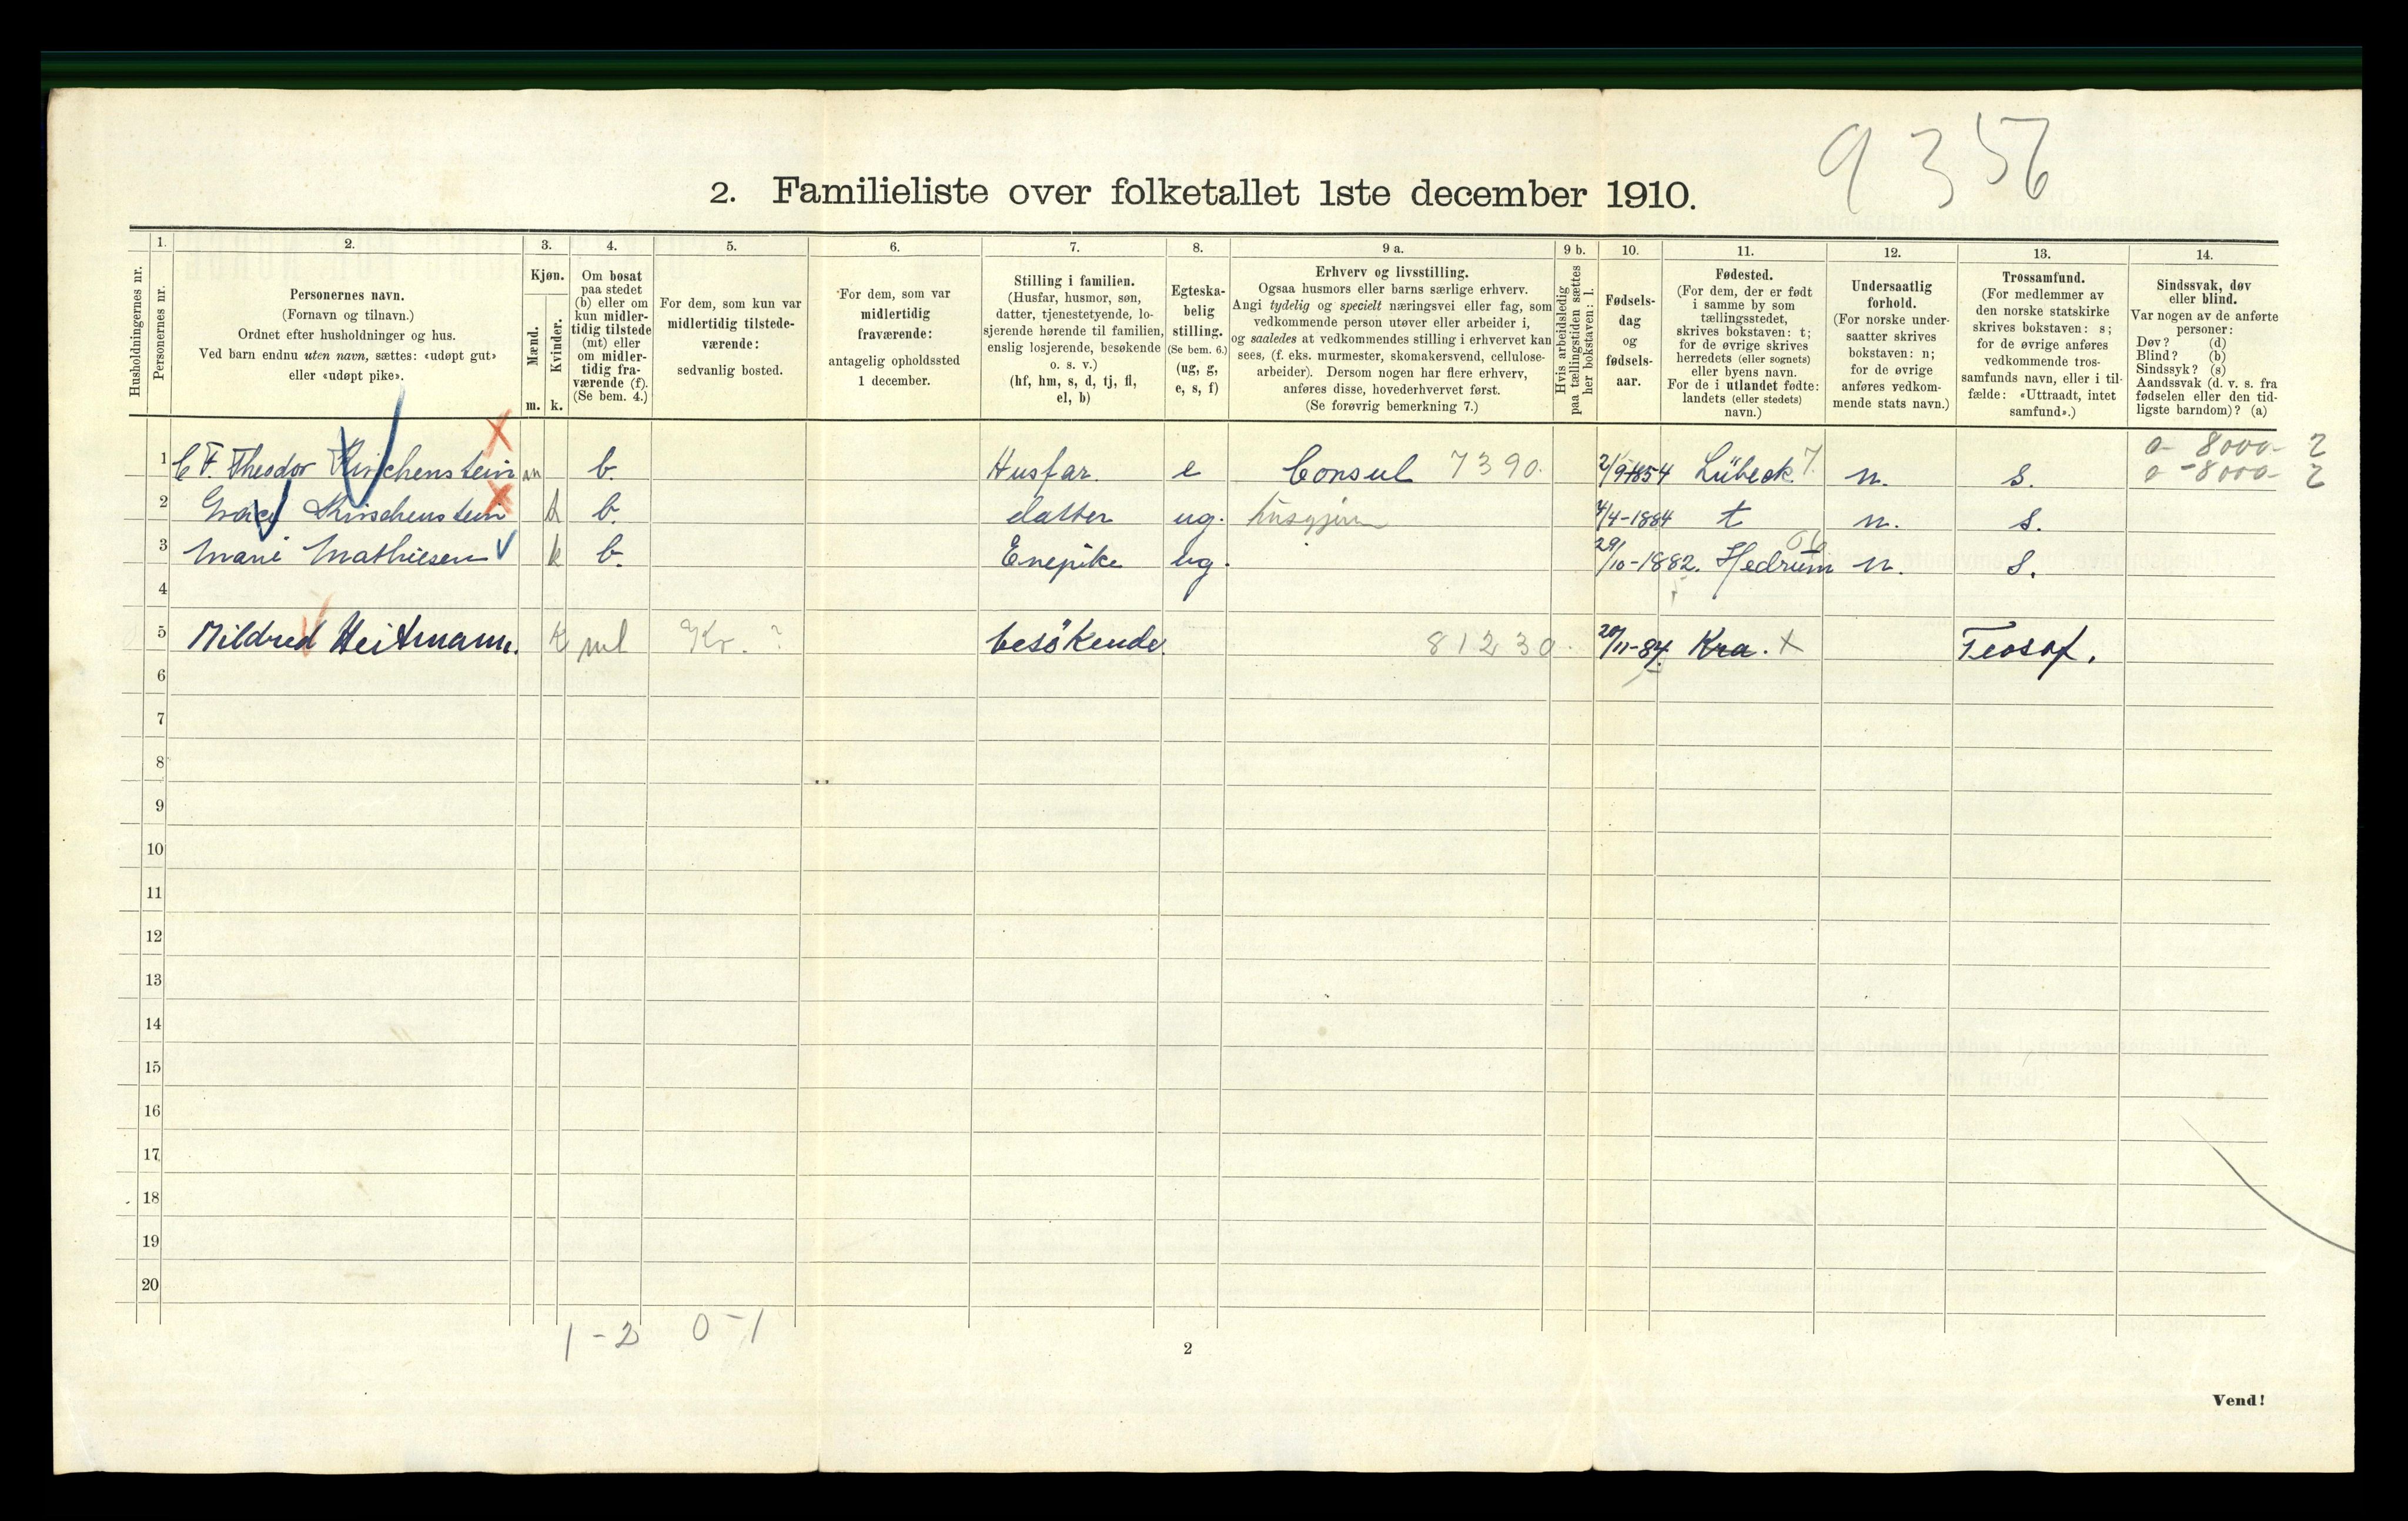 9356
2. Familieliste over folketallet 1ste december 1910.
Husholdningernes nr.
1. Personernes nr.
2. Personernes navn.
(Fornavn og tilnavn.)
Ordnet efter husholdninger og hus.
Ved barn endnu uten navn, sættes: «udøpt gut»
eller «udøpt pike».
3. Kjøn.
Mænd. m.
Kvinder. k.
4. Om bosat
paa stedet
(b) eller om
kun midler-
tidig tilstede
(mt) eller
om midler-
tidig fra-
værende (f).
(Se bem. 4.)
5. For dem, som kun var
midlertidig tilstede-
værende:
sedvanlig bosted.
6. For dem, som var
midlertidig
fraværende:
antagelig opholdssted
1 december.
7. Stilling i familien.
(Husfar, husmor, søn,
datter, tjenestetyende, lo-
sjerende hørende til familien,
enslig losjerende, besøkende
o. s. v.)
(hf, hm, s, d, tj, fl,
el, b)
8. Egteska-
belig
stilling.
(Se bem. 6.)
(ug, g,
e, s, f)
9 a. Erhverv og livsstilling.
Ogsaa husmors eller barns særlige erhverv.
Angi tydelig og specielt næringsvei eller fag, som
vedkommende person utøver eller arbeider i,
og saaledes at vedkommendes stilling i erhvervet kan
sees, (f. eks. murmester, skomakersvend, cellulose-
arbeider). Dersom nogen har flere erhverv,
anføres disse, hovederhvervet først.
(Se forøvrig bemerkning 7.)
9 b. Hvis arbeidsledig
paa tællingstiden sættes
her bokstaven: l.
10. Fødsels-
dag
og
fødsels-
aar.
11. Fødested.
(For dem, der er født
i samme by som
tællingsstedet,
skrives bokstaven: t;
for de øvrige skrives
herredets (eller sognets)
eller byens navn.
For de i utlandet fødte:
landets (eller stedets)
navn.)
12. Undersaatlig
forhold.
(For norske under-
saatter skrives
bokstaven: n;
for de øvrige
anføres vedkom-
mende stats navn.)
13. Trossamfund.
(For medlemmer av
den norske statskirke
skrives bokstaven: s;
for de øvrige anføres
vedkommende tros-
samfunds navn, eller i til-
fælde: «Uttraadt, intet
samfund».)
14. Sindssvak, døv
eller blind.
Var nogen av de anførte
personer:
Døv? (d)
Blind? (b)
Sindssyk? (s)
Aandssvak (d. v. s. fra
fødselen eller den tid-
ligste barndom)? (a)
a - 8000 - 2
1 C F. Theodor Kirschenstein m b. Husfar. e Consul 7390. 2/9 1854 Lübeck 7. n. s. a - 8000 - 2
2 Grace Kirschenstein k b. datter ug. husgjern 4/4-1884 t n. s.
3 Marie Mathiesen k b. Enepike ug. 29/10-1882. Hedrum n. s.
4
5 Mildred Heitmann. K mt Kr. ? besökende. 81230. 20/11-84. Kra. x Teosof.
6
7
8
9
10
11
12
13
14
15
16
17
18
19
20
1 - 2 0 - 1
2
Vend!